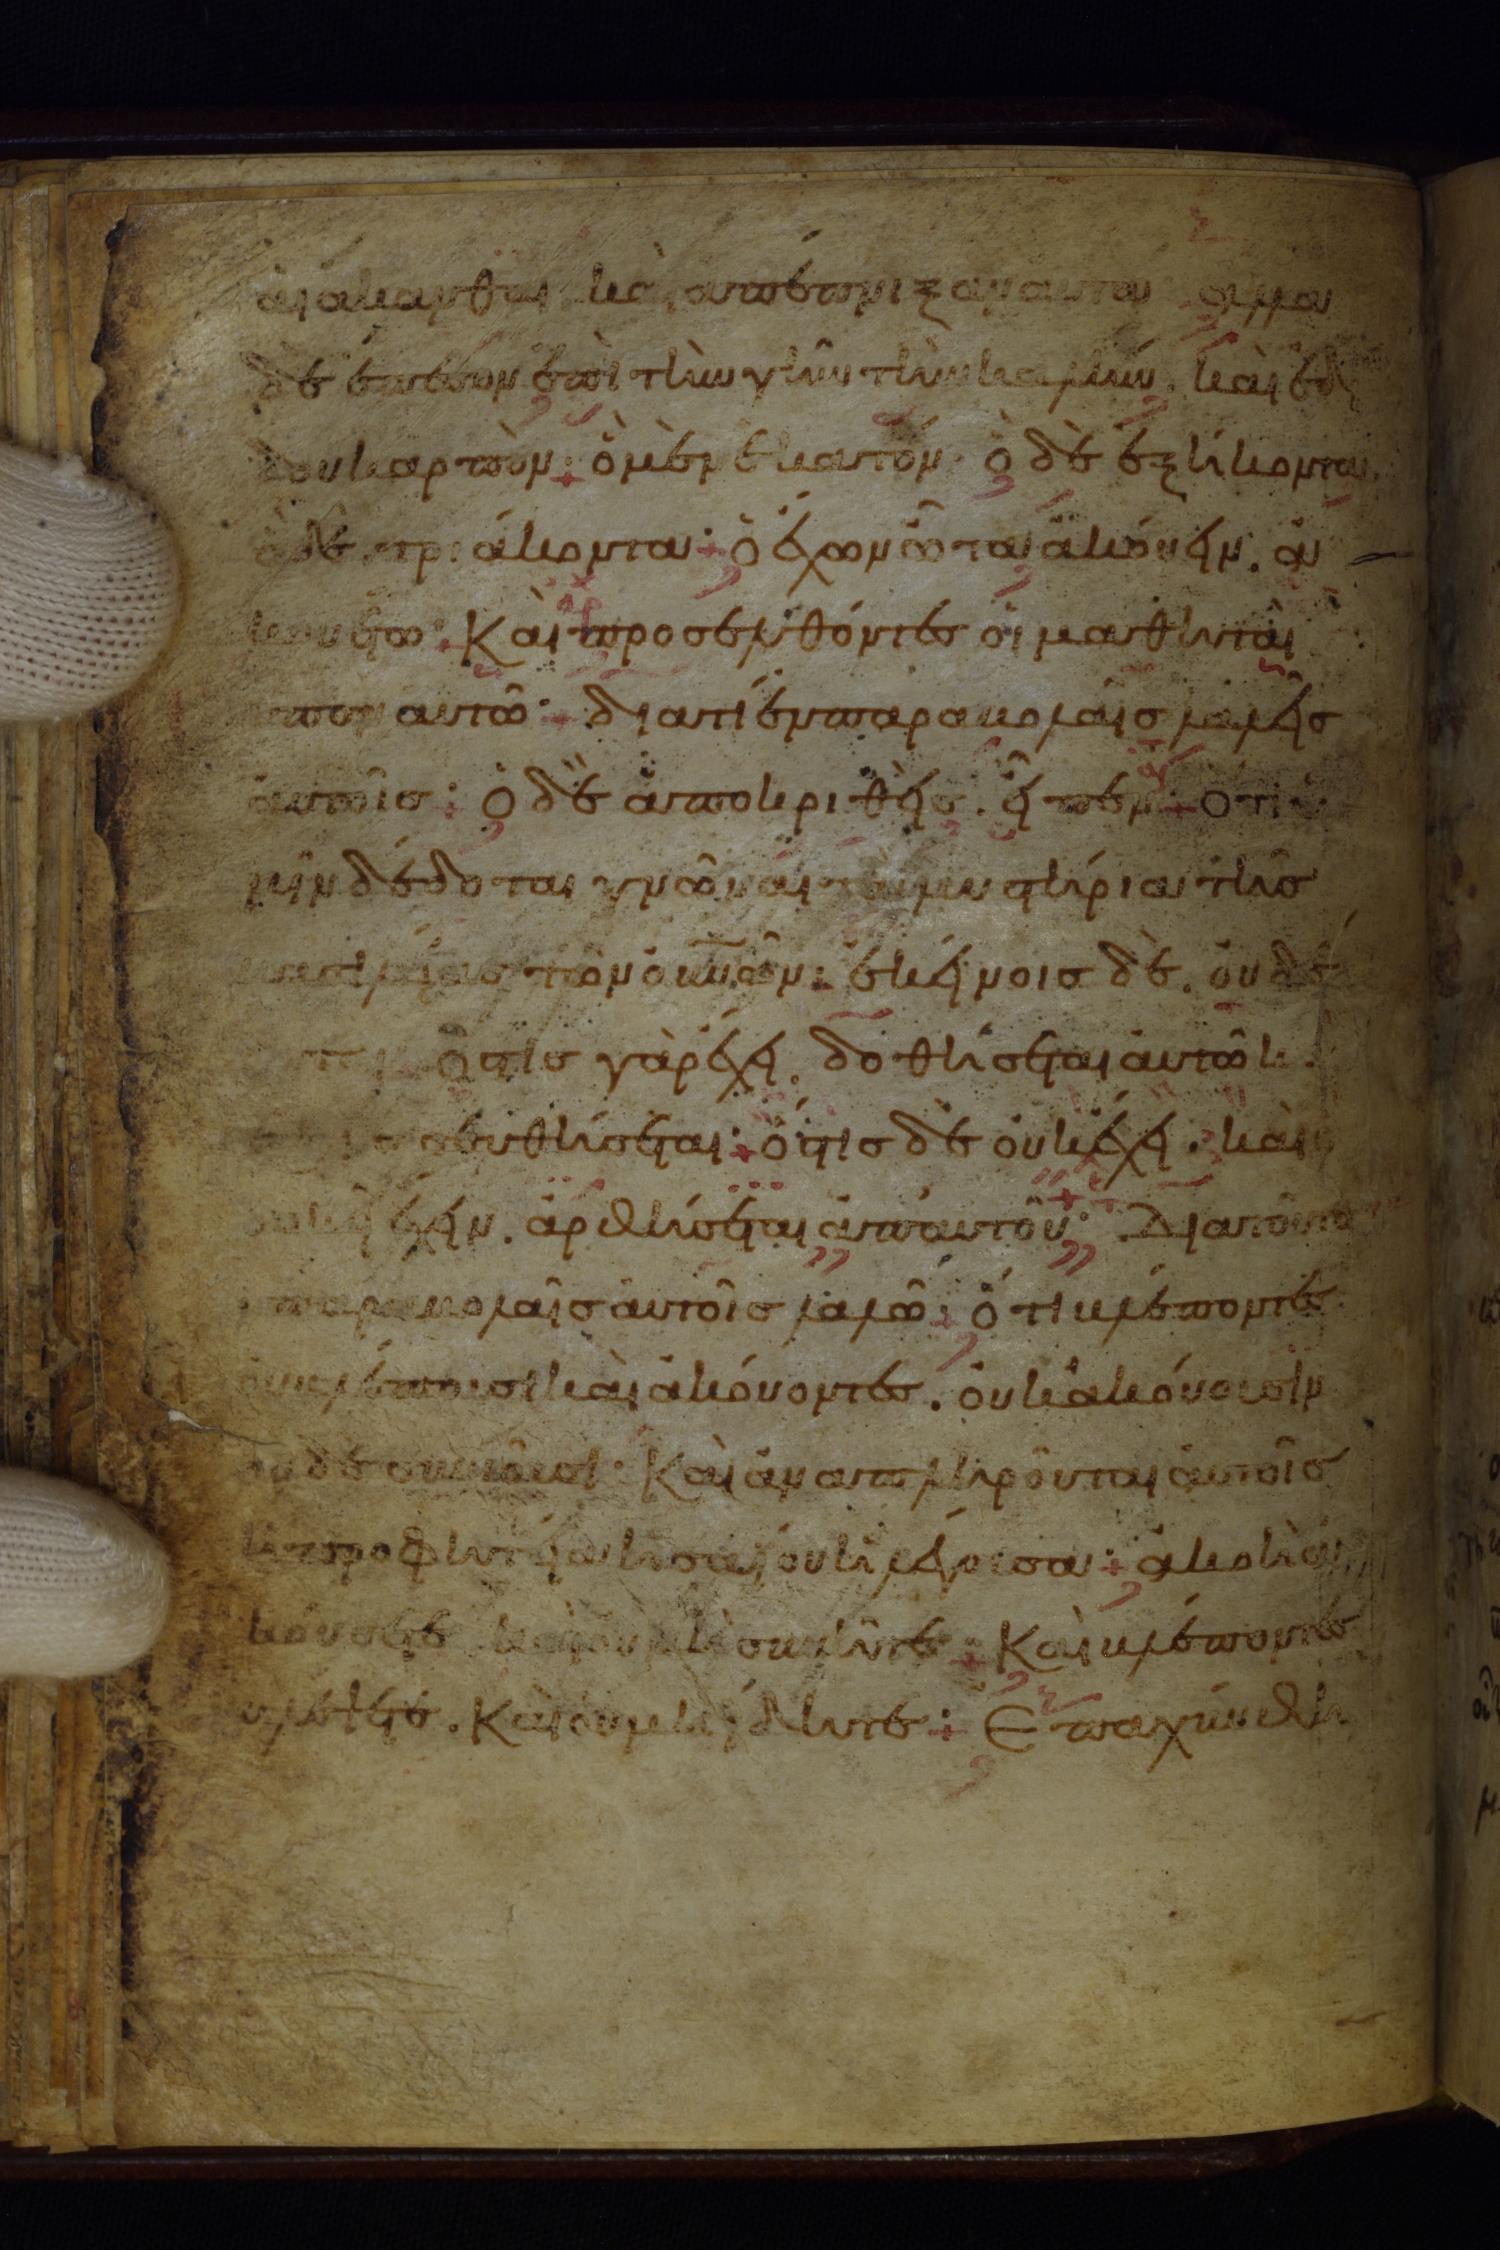 ἁι ἄκανθαι καὶ ἀπέπνιξαν αυτά ἄλλα
δὲ ἔπεσον ἐπὶ τὴν γῆν τὴν καλήν. καὶ ἐδί
δου καρπὸν: ὁ μὲν ἑκατόν. ὁ δὲ ἑξήκοντα.
ὁ δὲ τριάκοντα: ὁ ἔχων ὦτα ἀκούειν. ἀ
κουέτω: Καὶ προσελθόντες οἱ μαθηταὶ
ειπον αυτῶ: διατί ἐν παραβολαῖς λαλεῖς
ἀυτοῖς: ὁ δὲ ἀποκριθεὶς. εἶπεν: ὅτι ὑ
μῖν δέδοται γνῶναι τὰ μυστήρια τῆς
βασιλείας τῶν ὀυνῶν: ἐκείνοις δὲ. ὀυ δέ
ὅστις γὰρ ἔχει. δοθήσεται ἀυτῶ κ
σευθήσεται: ὅστις δὲ ὀυκ ἔχει. καὶ
ὃ ἔχειν. ἀρθήσεται ἀπ ἀυτοῦ: Διατοῦτο
ἐν παραβολαῖς ἀυτοῖς λαλῶ: ὅτι βλέποντες
ὀυ βλέπουσι καὶ ἀκόυοντες. ὀυκ ἀκόυουσιν
ὀυδὲ συνιοῦσι: Καὶ ἀναπληροῦται ἀυτοῖς
ἡ προφητεία ησαΐου ἡ λέγουσα: ἀκοῆ ἀ
κούσετε καὶ ὀυ μὴ συνῆτε: Καὶ βλέποντες
βλέψετε. Καὶ ὀυ μὴ ἴδητε: Ἐπαχύνθη